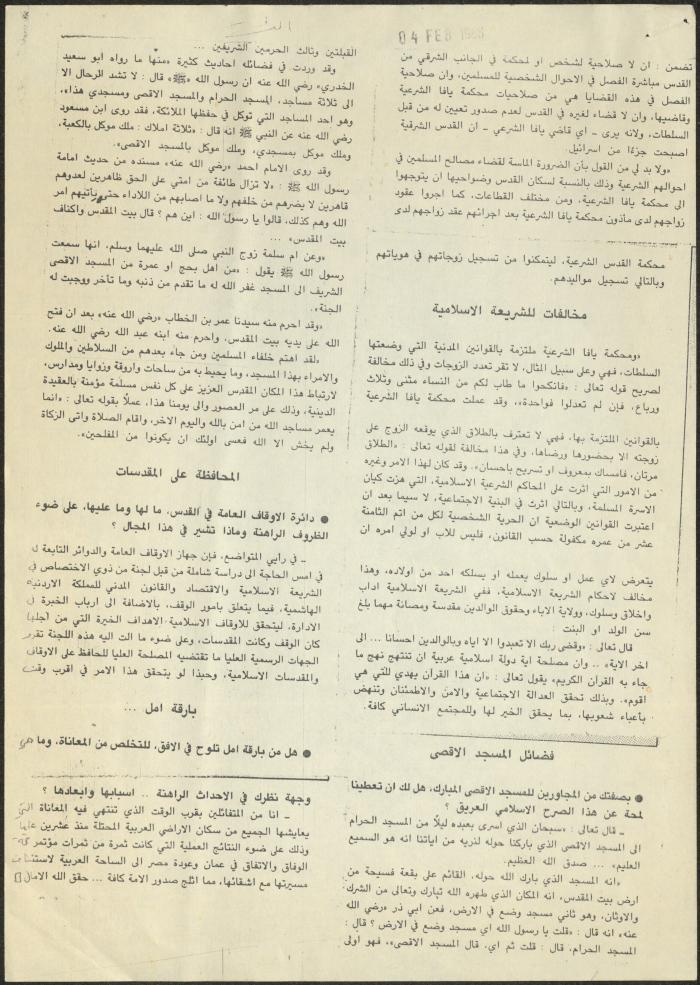 04 FEB
تضمن : ان لا صلاحية لشخص او لمحكمة في الجانب الشرقي من
القدس مباشرة الفصل في الاحوال الشخصية للمسلمين، وان صلاحية
الفصل في هذه القضايا هي من صلاحيات محكمة يافا الشرعية
وقاضيها، وان لا قضاء لغيره في القدس لعدم صدور تعيين له من قبل
السلطات، ولانه يرى ــ اي قاضي يافا الشرعي ــ ان القدس الشرقية
اصبحت جزءًا من اسرائيل.
«ولا بد لي من القول بأن الضرورة الماسة لقضاء مصالح المسلمين في
احوالهم الشرعية وذلك بالنسبة لسكان القدس وضواحيها ان يتوجهوا
الى محكمة يافا الشرعية، ومن مختلف القطاعات، كما اجروا عقود
زواجهم لدى مأذون محكمة يافا الشرعية بعد اجرائهم عقد زواجهم لدى
محكمة القدس الشرعية، ليتمكنوا من تسجيل زوجاتهم في هوياتهم
وبالتالي تسجيل مواليدهم.
مخالفات للشريعة الاسلامية
«ومحكمة يافا الشرعية ملتزمة بالقوانين المدنية التي وضعتها
السلطات، فهي وعلى سبيل المثال، لا تقر تعدد الزوجات وفي ذلك مخالفة
لصريح قوله تعالى : «فانكحوا ما طاب لكم من النساء مثنى وثلاث
ورباع، فإن لم تعدلوا فواحدة»، وقد عملت محكمة يافا الشرعية
بالقوانين الملتزمة بها، فهي لا تعترف بالطلاق الذي يوقعه الزوج على
زوجته الا بحضورها ورضاها، وفي هذا مخالفة لقوله تعالى : «الطلاق
مرتان، فامساك بمعروف او تسريح باحسان». وقد كان لهذا الامر وغيره
من الامور التي اثرت على المحاكم الشرعية الاسلامية، التي هزت كيان
الاسرة المسلمة، وبالتالي اثرت في البنية الاجتماعية، لا سيما بعد ان
اعتبرت القوانين الوضعية ان الحرية الشخصية لكل من اتم الثامنة
عشر من عمره مكفولة حسب القانون، فليس للاب او لولي امره ان
يتعرض لاي عمل او سلوك يعمله او يسلكه احد من اولاده، وهذا
مخالف لاحكام الشريعة الاسلامية، ففي الشريعة الاسلامية اداب
واخلاق وسلوك، وولاية الاباء وحقوق الوالدين مقدسة ومصانة مهما بلغ
سن الولد او البنت :
قال تعالى : «وقضى ربك الا تعبدوا الا اياه وبالوالدين احسانا ... الى
اخر الاية» .. وان مصلحة اية دولة اسلامية عربية ان تنتهج نهج ما
جاء به القرآن الكريم، يقول تعالى : «ان هذا القرآن يهدي للتي هي
اقوم»، وبذلك تحقق العدالة الاجتماعية والامن والاطمئنان وتنهض
بأعباء شعوبها، بما يحقق الخير لها وللمجتمع الانساني كافة.
فضائل المسجد الاقصى
● بصفتك من المجاورين للمسجد الاقصى المبارك، هل لك ان تعطينا
لمحة عن هذا الصرح الاسلامي العريق ؟
ــ قال تعالى : «سبحان الذي اسرى بعبده ليلًا من المسجد الحرام
الى المسجد الاقصى الذي باركنا حوله لنريه من اياتنا انه هو السميع
العليم» ... صدق الله العظيم.
«انه المسجد الذي بارك الله حوله، القائم على بقعة فسيحة من
ارض بيت المقدس، انه المكان الذي طهره الله تبارك وتعالى من الشرك
والاوثان، وهو ثاني مسجد وضع في الارض، فعن ابي ذر «رضي الله
عنه» انه قال : «قلت يا رسول الله اي مسجد وضع في الارض ؟ قال :
المسجد الحرام، قال : قلت ثم اي، قال المسجد الاقصى»، فهو اولى
القبلتين وثالث الحرمين الشريفين ...
وقد وردت في فضائله احاديث كثيرة «منها ما رواه ابو سعيد
الخدري» رضي الله عنه ان رسول الله «ﷺ» قال : لا تشد الرحال الا
الى ثلاثة مساجد، المسجد الحرام والمسجد الاقصى ومسجدي هذا»،
وهو احد المساجد التي توكل في حفظها الملائكة، فقد روى ابن مسعود
رضي الله عنه عن النبي ﷺ انه قال : «ثلاثة املاك : ملك موكل بالكعبة،
وملك موكل بمسجدي، وملك موكل بالمسجد الاقصى».
وقد روى الامام احمد «رضي الله عنه» مسنده من حديث امامة
رسول الله ﷺ : «لا تزال طائفة من امتي على الحق ظاهرين لعدوهم
قاهرين لا يضرهم من خلفهم ولا ما اصابهم من اللاداء حتى يأتيهم امر
الله وهم كذلك، قالوا يا رسول الله : اين هم ؟ قال بيت المقدس واكناف
بيت المقدس» ...
«وعن ام سلمة زوج النبي صلى الله عليهما وسلم، انها سمعت
رسول الله ﷺ يقول : «من اهل بحج او عمرة من المسجد الاقصى
الشريف الى المسجد غفر الله له ما تقدم من ذنبه وما تأخر ووجبت له
الجنة».
«وقد احرم منه سيدنا عمر بن الخطاب «رضي الله عنه» بعد ان فتح
الله على يديه بيت المقدس، واحرم منه ابنه عبد الله رضي الله عنه.
«لقد اهتم خلفاء المسلمين ومن جاء بعدهم من السلاطين والملوك
والامراء بهذا المسجد، وما يحيط به من ساحات واروقة وزوايا ومدارس،
لارتباط هذا المكان المقدس العزيز على كل نفس مسلمة مؤمنة بالعقيدة
الدينية، وذلك على مر العصور والى يومنا هذا، عملًا بقوله تعالى : «انما
يعمر مساجد الله من امن بالله واليوم الاخر، واقام الصلاة واتى الزكاة
ولم يخش الا الله فعسى اولئك ان يكونوا من المفلحين».
المحافظة على المقدسات
● دائرة الاوقاف العامة في القدس، ما لها وما عليها، على ضوء
الظروف الراهنة وماذا تشير في هذا المجال ؟
ــ في رأيي المتواضع، فإن جهاز الاوقاف العامة والدوائر التابعة
في امس الحاجة الى دراسة شاملة من قبل لجنة من ذوي الاختصاص في
الشريعة الاسلامية والاقتصاد والقانون المدني للمملكة الاردنية
الهاشمية، فيما يتعلق بامور الوقف، بالاضافة الى ارباب الخبرة في
الادارة، ليتحقق للاوقاف الاسلامية الاهداف الخيرة التي من اجلها
كان الوقف وكانت المقدسات، وعلى ضوء ما الت اليه هذه اللجنة تقرر
الجهات الرسمية العليا ما تقتضيه المصلحة العليا للحافظ على الاوقاف
والمقدسات الاسلامية، وحبذا لو يتحقق هذا الامر في اقرب وقت
بارقة امل ...
● هل من بارقة امل تلوح في الافق، للتخلص من المعاناة، وما هي
وجهة نظرك في الاحداث الراهنة .. اسبابها وابعادها ؟
ــ انا من المتفائلين بقرب الوقت الذي تنتهي فيه المعاناة التي
يعايشها الجميع من سكان الاراضي العربية المحتلة منذ عشرين عاما
وذلك على ضوء النتائج العملية التي كانت ثمرة من ثمرات مؤتمر
الوفاق والاتفاق في عمان وعودة مصر الى الساحة العربية لاستئناف
مسيرتها مع اشقائها، مما اثلج صدور الامة كافة ... حقق الله الامال